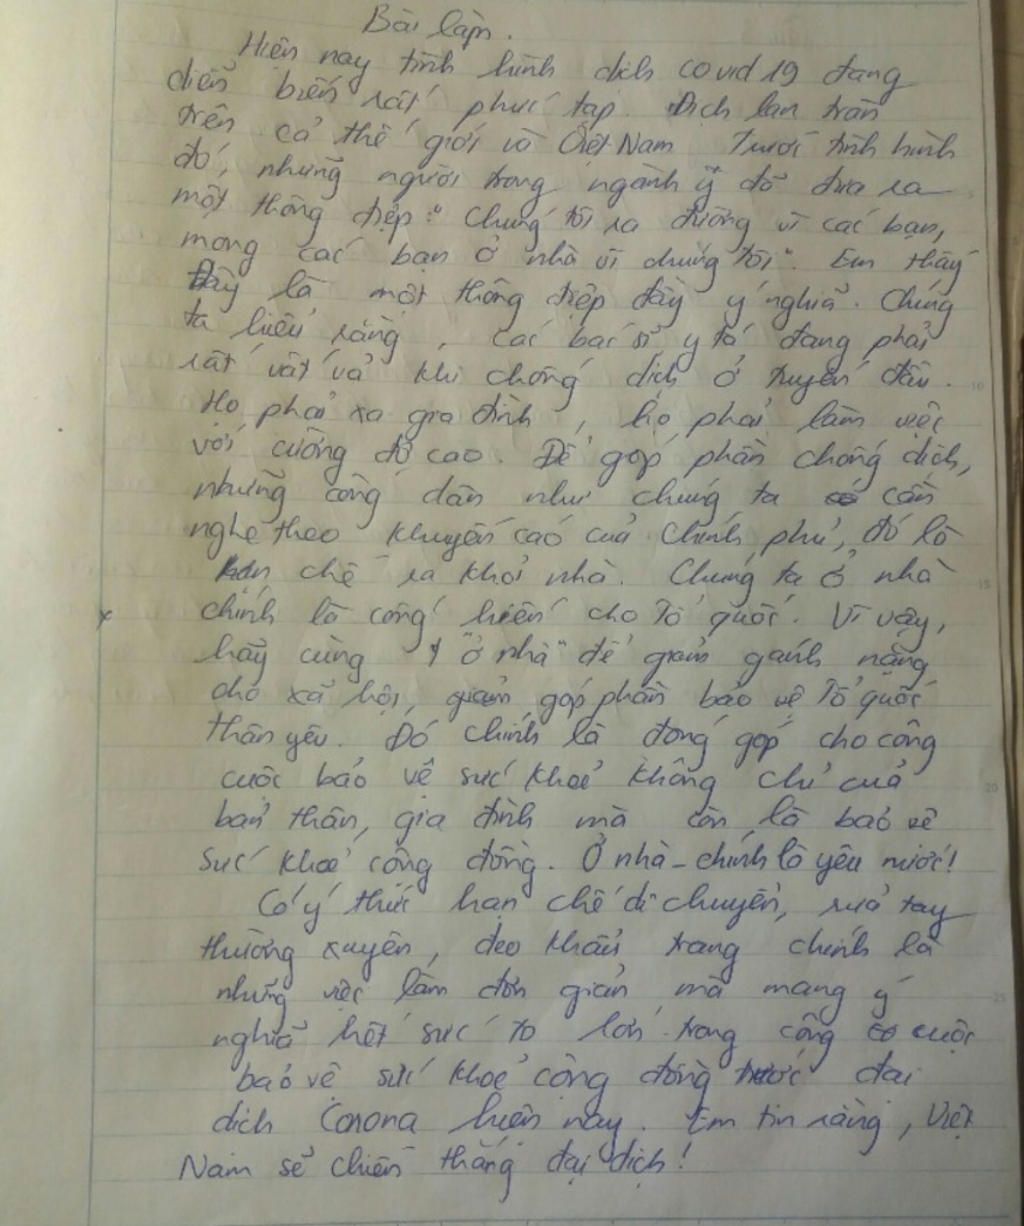 Bài làm.
Hiện nay tình hình dịch covid 19 đang
diễn biến rất phức tạp. Dịch lan tràn
trên cả thế giới và Việt Nam Trước tình hình
đó, những người trong ngành y đã đưa ra
một thông điệp: "Chúng tôi ra đường vì các bạn,
mong các bạn ở nhà vì chúng tôi". Em thấy
đây là một thông điệp đầy ý nghĩa. Chúng
ta hiểu rằng, các bác sĩ y tá đang phải
rất vất vả khi chống dịch ở tuyến đầu.
Họ phải xa gia đình, họ phải làm việc
với cường độ cao. Để góp phần chống dịch,
những công dân như chúng ta cần
nghe theo khuyến cáo của Chính phủ, đó là
hạn chế ra khỏi nhà. Chúng ta ở nhà
chính là cống hiến cho Tổ quốc. Vì vậy,
hãy cùng "ở nhà" để giảm gánh nặng
cho xã hội, góp phần bảo vệ Tổ quốc
thân yêu. Đó chính là đóng góp cho công
cuộc bảo vệ sức khoẻ không chỉ của
bản thân, gia đình mà còn là bảo vệ
sức khoẻ cộng đồng. Ở nhà - chính là yêu nước!
Có ý thức hạn chế di chuyển, rửa tay
thường xuyên, đeo khẩu trang chính là
những việc làm đơn giản mà mang ý
nghĩa hết sức to lớn trong công cuộc
bảo vệ sức khoẻ cộng đồng trước đại
dịch Corona hiện nay. Em tin rằng, Việt
Nam sẽ chiến thắng đại dịch!